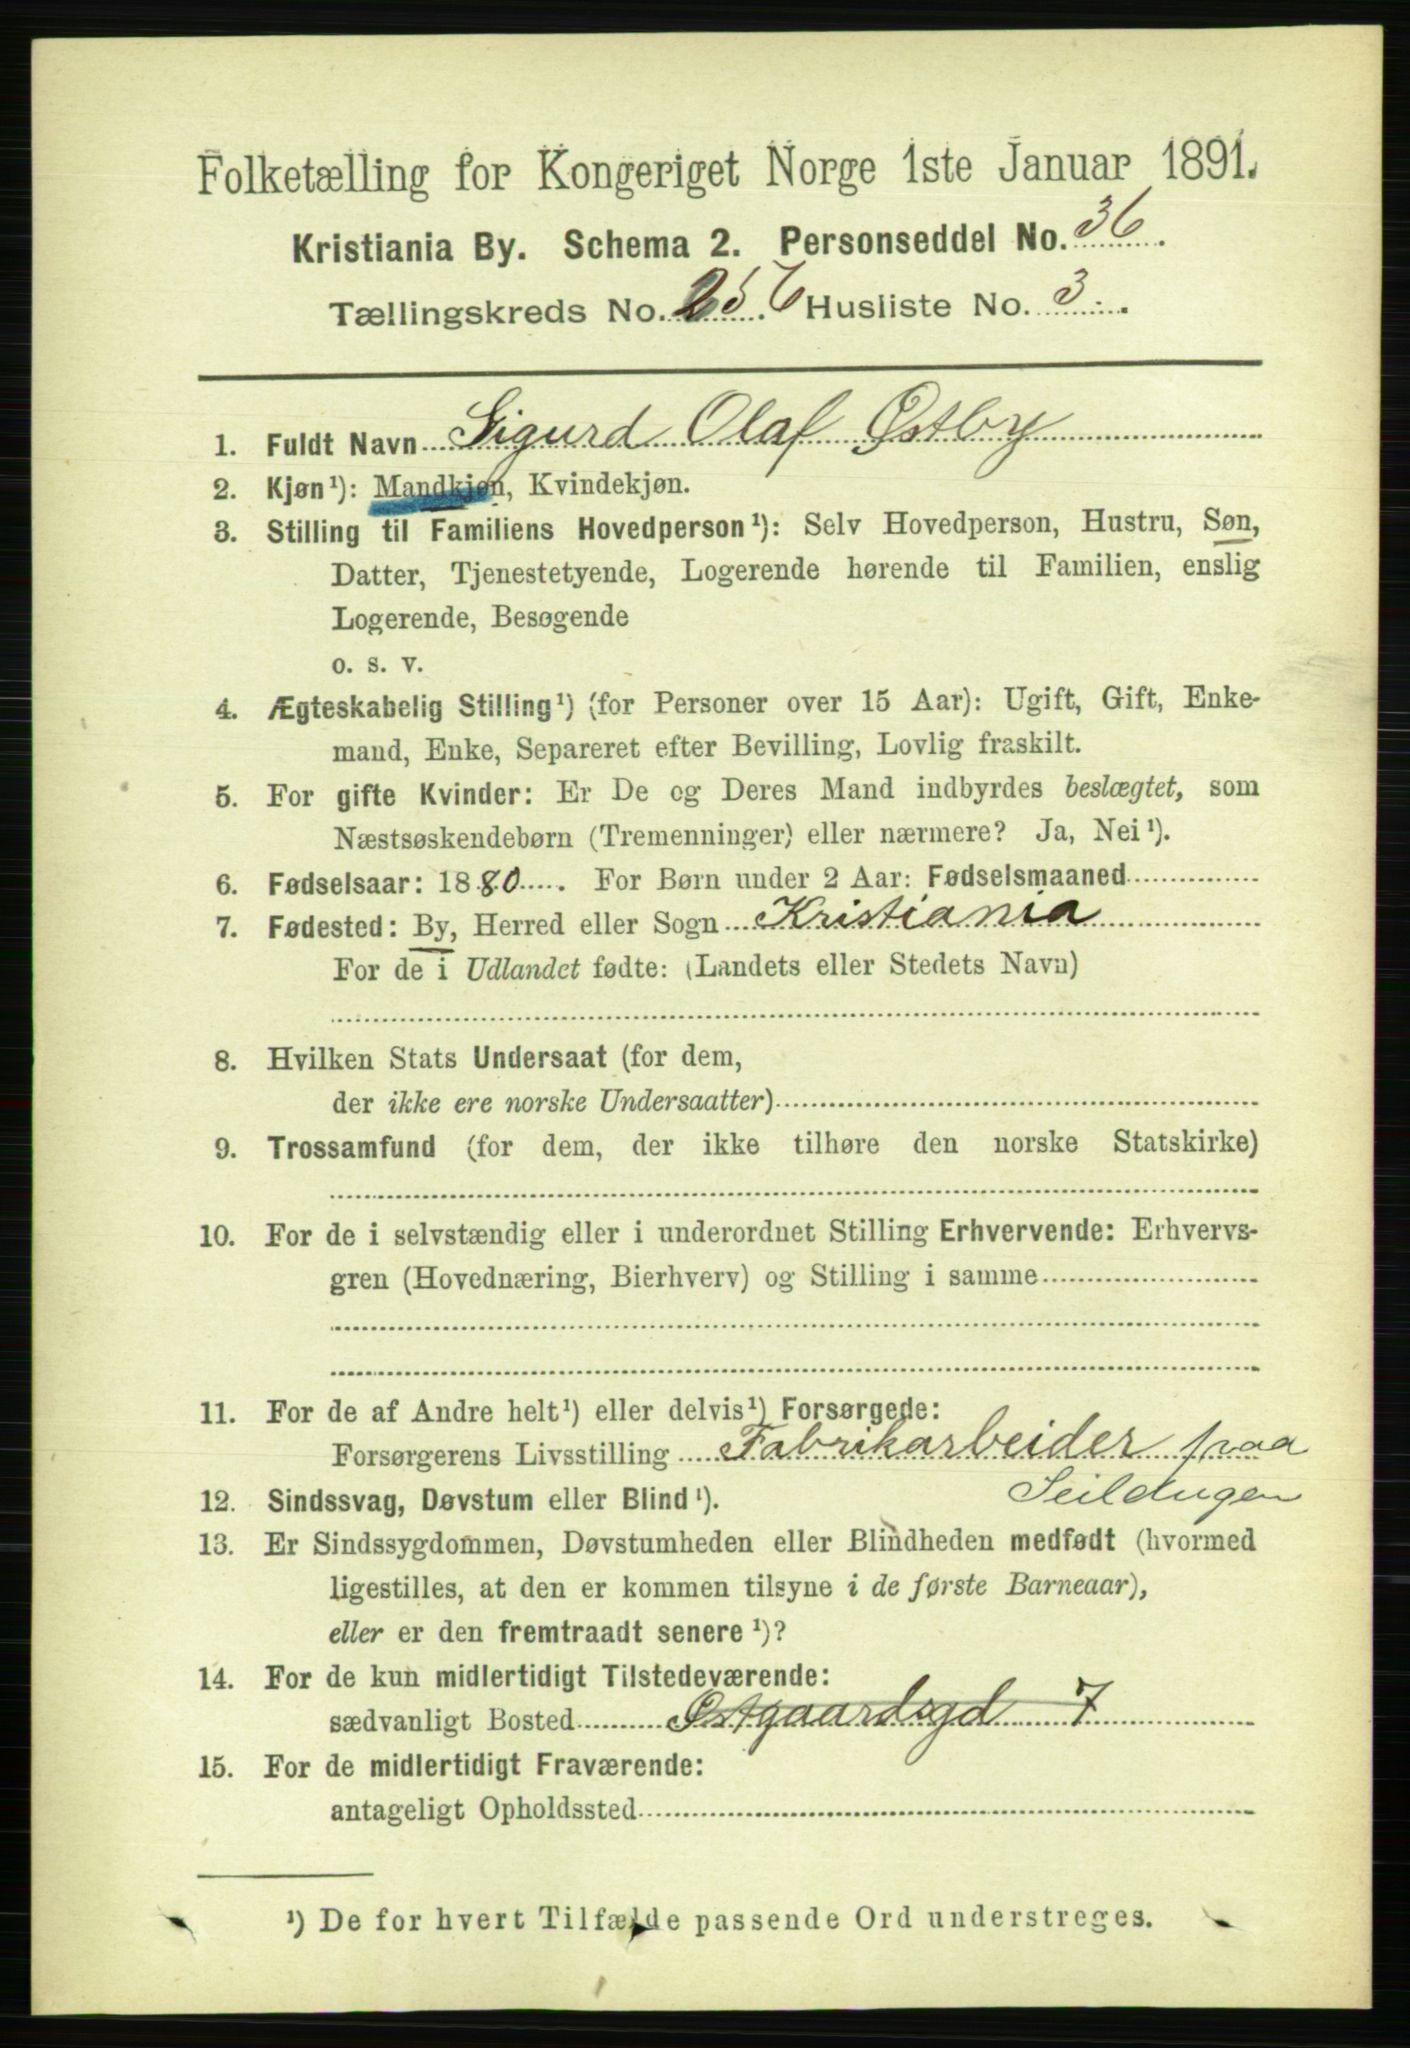 Folketælling for Kongeriget Norge 1ste Januar 1891.
Kristiania By. Schema 2. Personseddel No. 36.
Tællingskreds No. 256 Husliste No. 3.
1. Fuldt Navn Sigurd Olaf Østby
2. Kjøn¹): Mandkjøn, Kvindekjøn.
3. Stilling til Familiens Hovedperson¹): Selv Hovedperson, Hustru, Søn,
Datter, Tjenestetyende, Logerende hørende til Familien, enslig
Logerende, Besøgende
o. s. v.
4. Ægteskabelig Stilling¹) (for Personer over 15 Aar): Ugift, Gift, Enke-
mand, Enke, Separeret efter Bevilling, Lovlig fraskilt.
5. For gifte Kvinder: Er De og Deres Mand indbyrdes beslægtet, som
Næstsøskendebørn (Tremenninger) eller nærmere? Ja, Nei¹).
6. Fødselsaar: 1880. For Børn under 2 Aar: Fødselsmaaned
7. Fødested: By, Herred eller Sogn Kristiania
For de i Udlandet fødte: (Landets eller Stedets Navn)
8. Hvilken Stats Undersaat (for dem,
der ikke ere norske Undersaatter)
9. Trossamfund (for dem, der ikke tilhøre den norske Statskirke)
10. For de i selvstændig eller i underordnet Stilling Erhvervende: Erhvervs-
gren (Hovednæring, Bierhverv) og Stilling i samme
11. For de af Andre helt¹) eller delvis¹) Forsørgede:
Forsørgerens Livsstilling Fabrikarbeider paa
Seildugen
12. Sindssvag, Døvstum eller Blind¹).
13. Er Sindssygdommen, Døvstumheden eller Blindheden medfødt (hvormed
ligestilles, at den er kommen tilsyne i de første Barneaar),
eller er den fremtraadt senere¹)?
14. For de kun midlertidigt Tilstedeværende:
sædvanligt Bosted Østgaardsgd 7
15. For de midlertidigt Fraværende:
antageligt Opholdssted
¹) De for hvert Tilfælde passende Ord understreges.